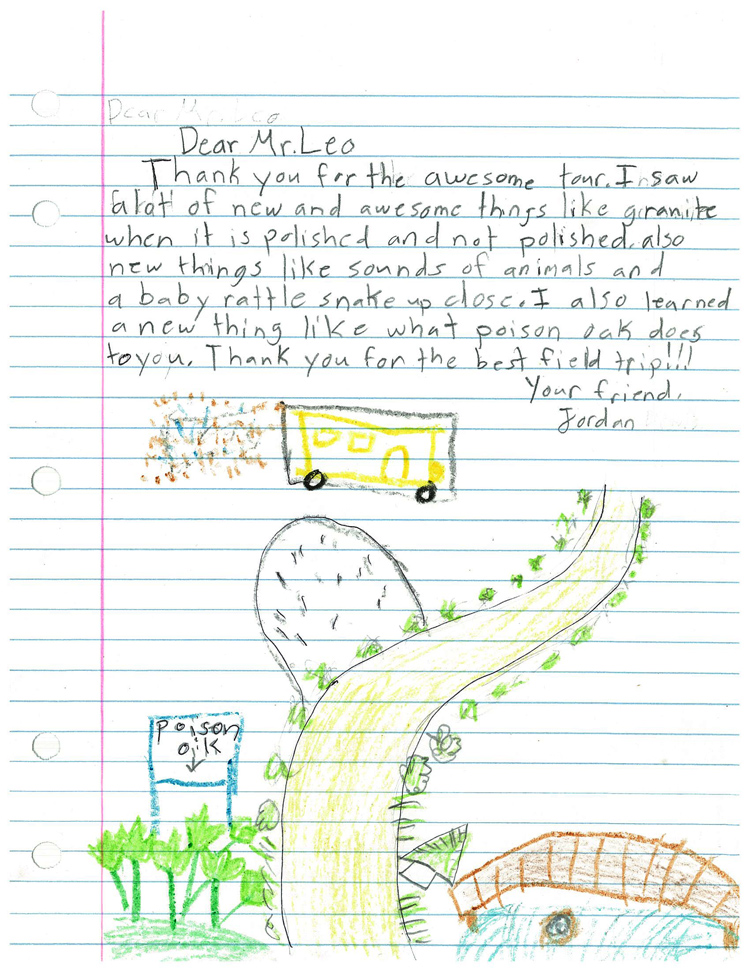 Dear Mr. Leo
Dear Mr. Leo
Thank you for the awesome tour. I saw
a lot of new and awesome things like granite
when it is polished and not polished. also
new things like sounds of animals and
a baby rattle snake up close. I also learned
a new thing like what poison oak does
to you. Thank you for the best field trip!!!
Your friend,
Jordan
Poison
oik